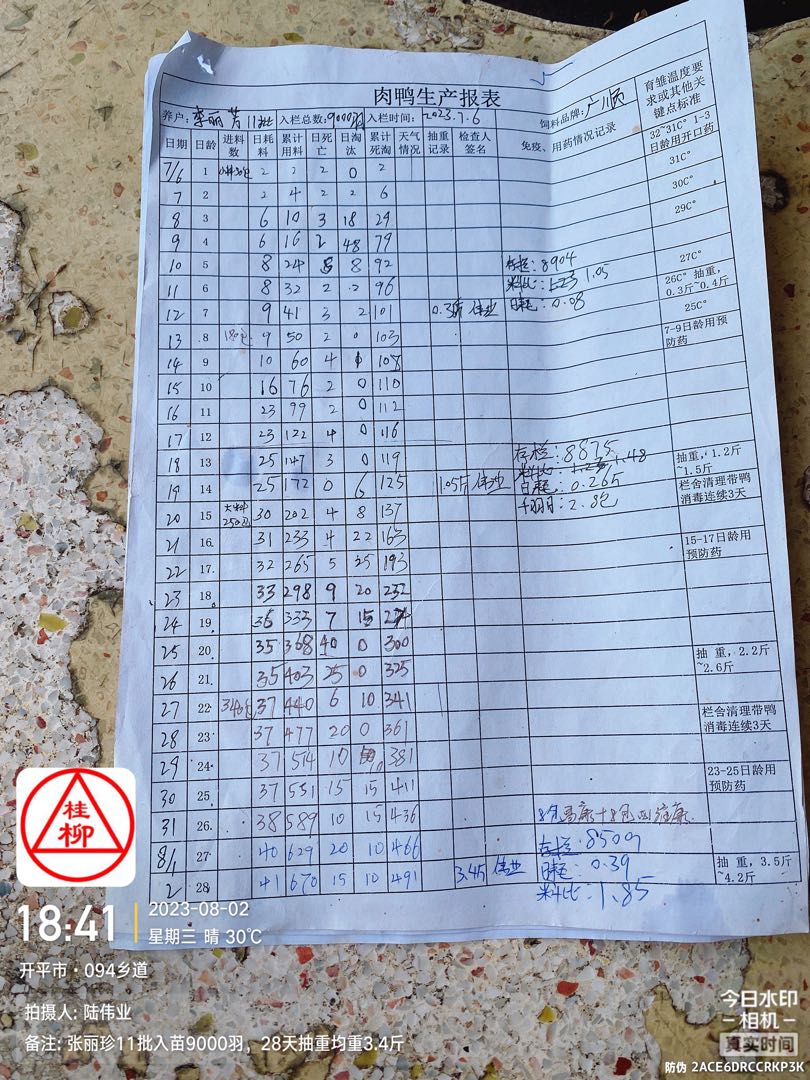 肉鸭生产报表
养户: 李丽芳11批 入栏总数:9000羽 入栏时间: 2023.7.6 饲料品牌: 广顺
日期 日龄 进料数 日耗料 累计用料 日死亡 日淘汰 累计死淘 天气情况 抽重记录 检查人签名 免疫、用药情况记录 育雏温度要求或其他关键点标准
7/6 1 2 2 2 0 2 32~31C° 1-3日龄用开口药
7 2 2 4 2 2 6 31C°
8 3 6 10 3 18 29 30C°
9 4 6 16 2 48 79 29C°
10 5 8 24 5 8 92 存栏:8904 27C°
11 6 8 32 2 2 96 料比:1.23 1.05 26C° 抽重,0.3斤~0.4斤
12 7 9 41 3 2 101 0.3斤 伟业 日耗:0.08 25C°
13 8 180包 9 50 2 0 103 7-9日龄用预防药
14 9 10 60 4 108
15 10 16 76 2 0 110
16 11 23 99 2 0 112
17 12 23 122 4 0 116
18 13 25 147 3 0 119 存栏:8875 抽重,1.2斤~1.5斤
19 14 25 172 0 6 125 1.05斤 伟业 料比: 1.48 栏舍清理带鸭消毒连续3天
日耗:0.265
20 15 大料250包 30 202 4 8 137 千羽日:2.8包
21 16. 31 233 4 22 163 15-17日龄用预防药
22 17. 32 265 5 25 193
23 18. 33 298 9 20 232
24 19. 35 333 7 15
25 20. 35 368 40 0 300
26 21. 35 403 25 0 325 抽重,2.2斤~2.6斤
27 22. 340包 37 440 6 10 341
28 23. 37 477 20 0 361 栏舍清理带鸭消毒连续3天
29 24. 37 514 10 381
30 25. 37 551 15 15 411 23-25日龄用预防药
31 26. 38 589 10 15 436
8/1 27. 40 629 20 10 466 存栏:8509
2 28. 41 670 15 10 491 3.45 伟业 日耗:0.39 抽重,3.5斤~4.2斤
料比:1.85
桂柳
18:41
2023-08-02
星期三 晴 30℃
开平市·094乡道
拍摄人: 陆伟业
备注: 张丽珍11批入苗9000羽，28天抽重均重3.4斤
今日水印
相机
真实时间
防伪 2ACE6DRCCRKP3K